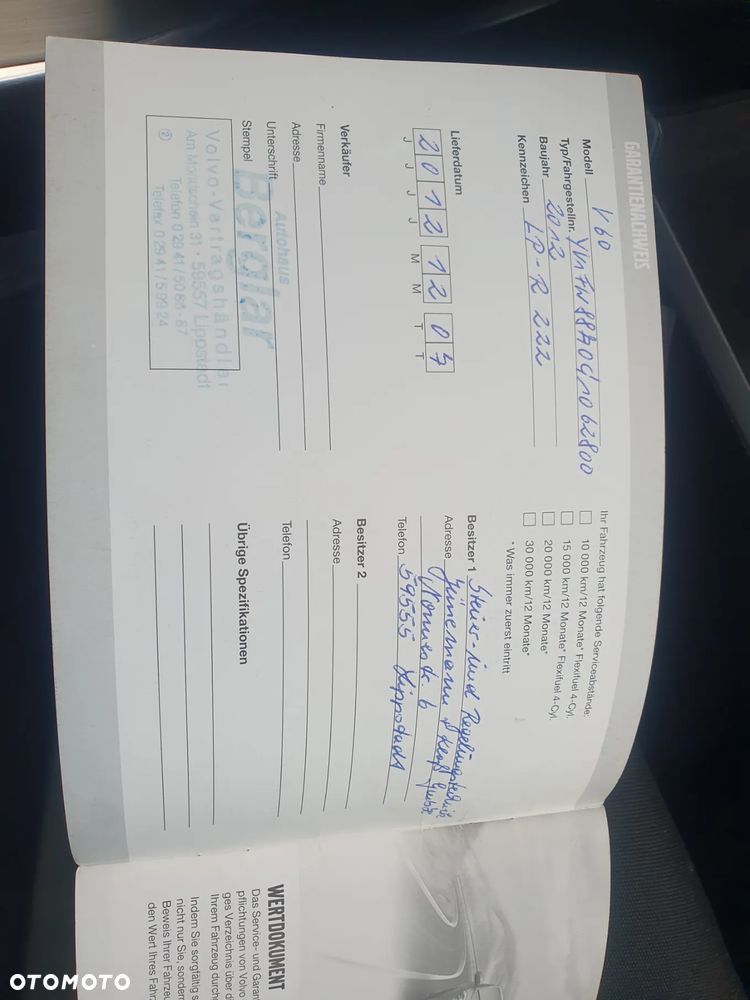 GARANTIENACHWEIS
Modell V60
Typ/Fahrgestellnr.
Baujahr 2012
Kennzeichen LP-R 222
Lieferdatum
2012 12 07
J J J J M M T T
Verkäufer
Firmenname
Adresse
Unterschrift
Stempel
Autohaus
Berglar
Volvo-Vertragshändler
31 · 59557 Lippstadt
Telefon 0 29 41 / 50 84 - 87
Telefax 0 29 41 / 5 99 24
(2)
Ihr Fahrzeug hat folgende Serviceabstände:
10 000 km/12 Monate* Flexifuel 4-Cyl.
15 000 km/12 Monate* Flexifuel 4-Cyl.
20 000 km/12 Monate*
30 000 km/12 Monate*
* Was immer zuerst eintritt
Besitzer 1 Steuer- und Regelungstechnik
Adresse Jünemann
6
Telefon 59555 Lippstadt
Besitzer 2
Adresse
Telefon
Übrige Spezifikationen
WERTDOKUMENT
Das Service- und Garan
pflichtungen von Volvo
ges Verzeichnis über di
Ihrem Fahrzeug durch
Indem Sie sorgfältig s
nicht nur Sie, sondern
Beweis Ihrer Fahrzeu
den Wert Ihres Fahr
OTOMOTO